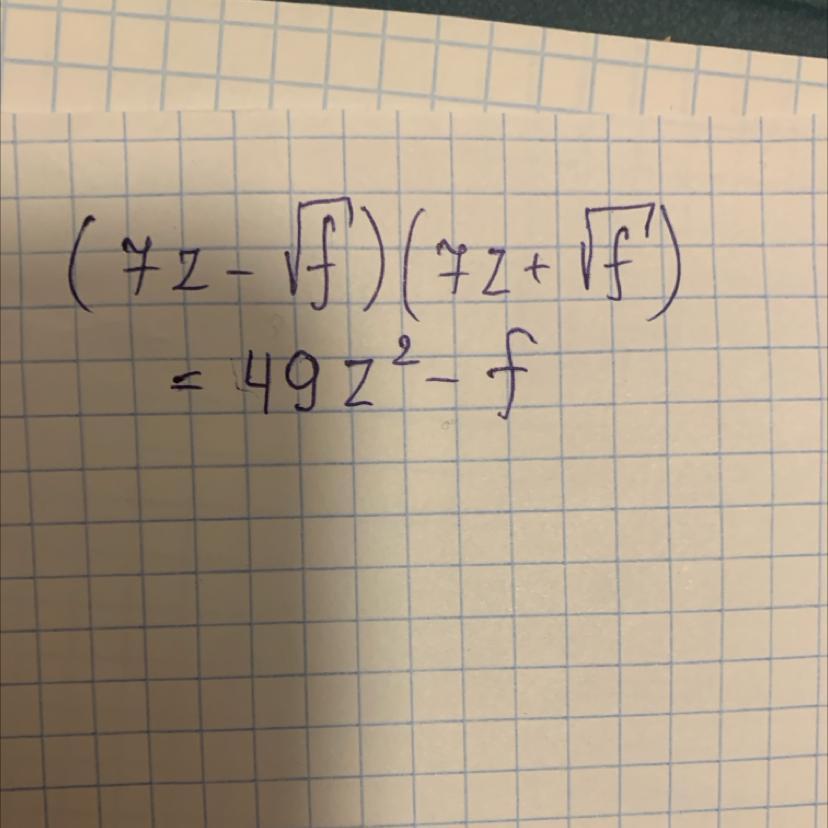 (7z - √f)(7z + √f)
= 49z² - f